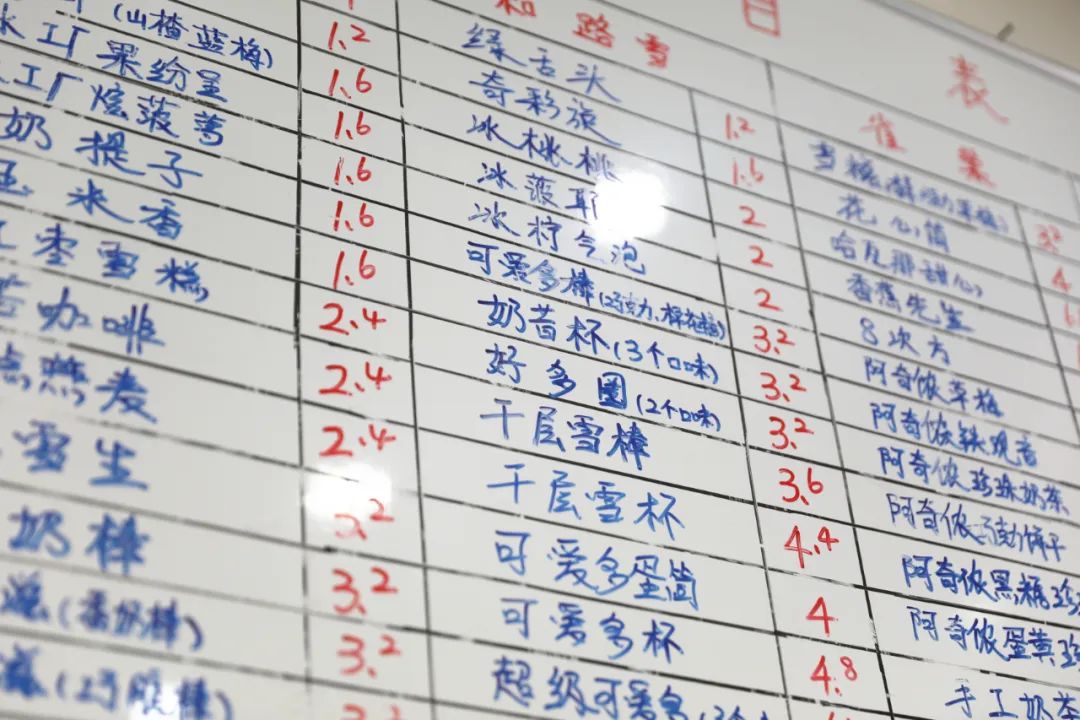 目
表
(山楂蓝梅)
1.2
冰工厂果纷呈
1.6
工厂炫菠萝
1.6
奶提子
1.6
玉米香
1.6
枣雪糕
1.6
咖啡
2.4
点燕麦
2.4
雪生
2.4
奶棒
3.2
滋(香奶棒)
3.2
3.2
和路雪
绿舌头
1.2
奇彩旋
1.6
冰桃桃
2
冰菠耶
2
冰柠气泡
2
可爱多棒
3.2
奶昔杯(3个口味)
3.2
好多圈(2个口味)
3.2
千层雪棒
3.6
千层雪杯
4.4
可爱多蛋筒
4
可爱多杯
4.8
超级可爱多
雀巢
3.2
花心筒
4
哈瓦那甜心
6
香蕉先生
8次方
阿奇侬草莓
阿奇侬铁观音
阿奇侬珍珠奶茶
阿奇侬巧克力饼干
阿奇侬黑糖珍
阿奇侬蛋黄
手工奶茶